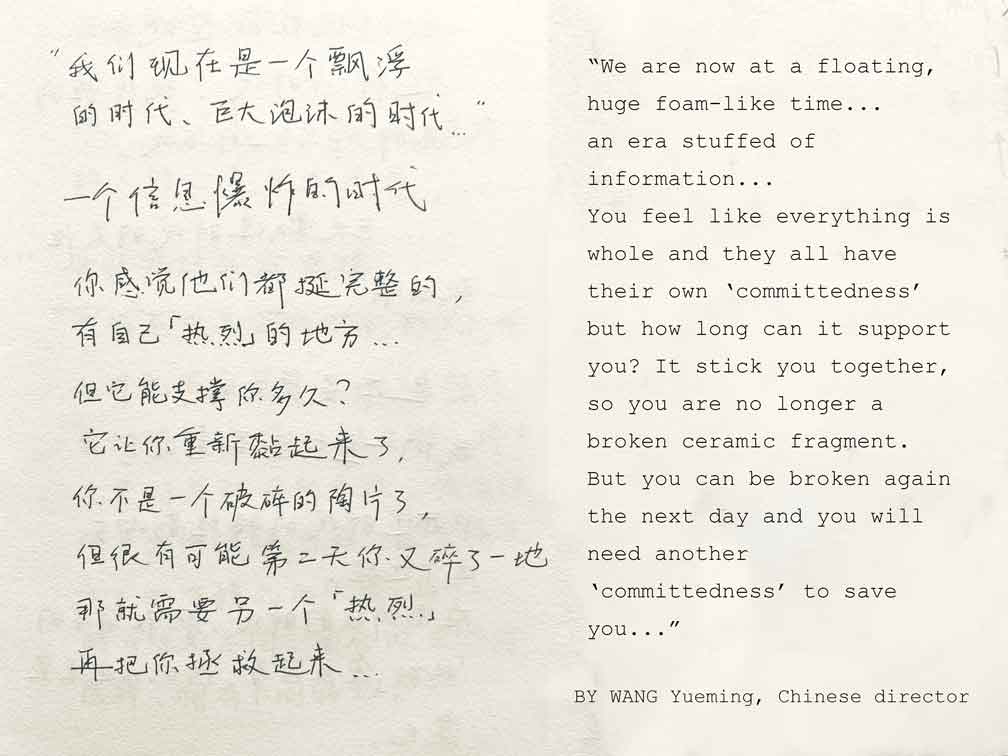 “我们现在是一个飘浮
的时代、巨大泡沫的时代...”
一个信息爆炸的时代
你感觉他们都挺完整的，
有自己「热烈」的地方...
但它能支撑你多久？
它让你重新黏起来了，
你不是一个破碎的陶片了，
但很有可能第二天你又碎了一地
那就需要另一个「热烈」
再把你拯救起来...
“We are now at a floating,
huge foam-like time...
an era stuffed of
information...
You feel like everything is
whole and they all have
their own ‘committedness’
but how long can it support
you? It stick you together,
so you are no longer a
broken ceramic fragment.
But you can be broken again
the next day and you will
need another
‘committedness’ to save
you...”
BY WANG Yueming, Chinese director